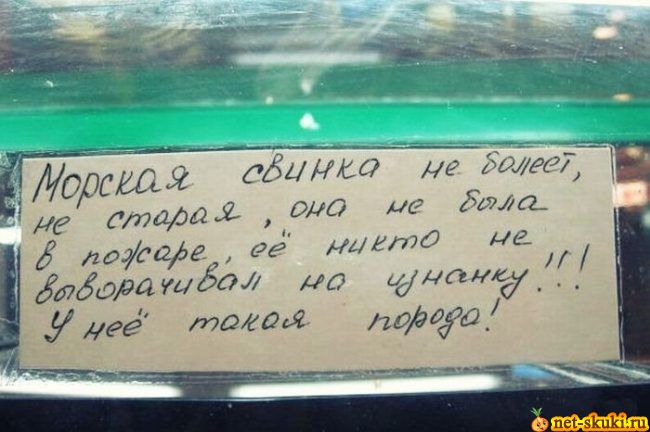 Морская свинка не болеет,
не старая, она не была
в пожаре, её никто не
выворачивал на изнанку!!!
У неё такая порода!
net-skuki.ru